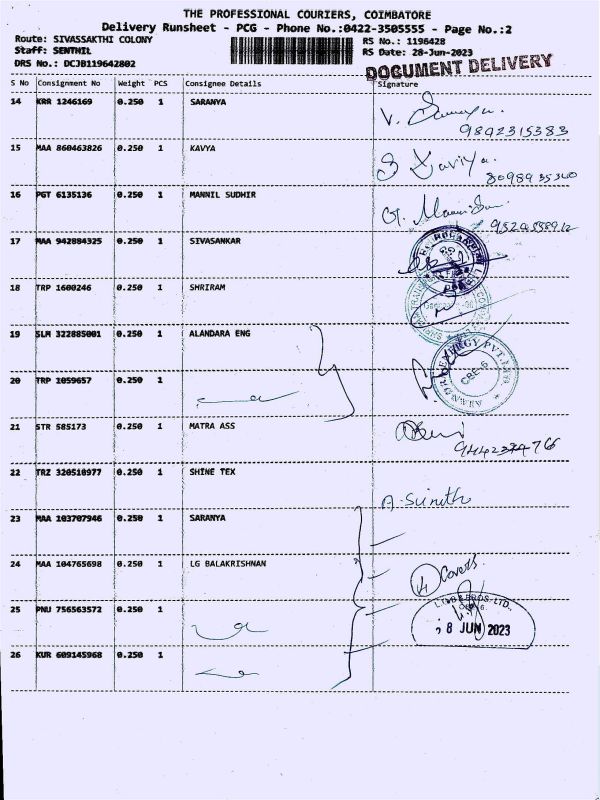 THE PROFESSIONAL COURIERS, COIMBATORE
Delivery Runsheet - PCG - Phone No.:0422-3505555 - Page No.:2
Route: SIVASSAKTHI COLONY
RS No.: 1196428
Staff: SENTHIL
RS Date: 28-Jun-2023
DRS No.: DCJB119642802
DOCUMENT DELIVERY
S No Consignment No Weight PCS Consignee Details Signature
14 KRR 1246169 0.250 1 SARANYA
9892315383
15 MAA 860463826 0.250 1 KAVYA
16 PGT 6135136 0.250 1 MANNIL SUDHIR
17 MAA 942884325 0.250 1 SIVASANKAR
18 TRP 1600246 0.250 1 SHRIRAM
19 SLM 322885001 0.250 1 ALANDARA ENG
ENERGY PVT.
CBE-6
20 TRP 1059657 0.250 1
21 STR 585173 0.250 1 MATRA ASS
22 TRZ 320510977 0.250 1 SHINE TEX
A. Sunith
23 MAA 103707946 0.250 1 SARANYA
24 MAA 104765698 0.250 1 LG BALAKRISHNAN
4 Covers
25 PNU 756563572 0.250 1
28 JUN 2023
26 KUR 609145968 0.250 1